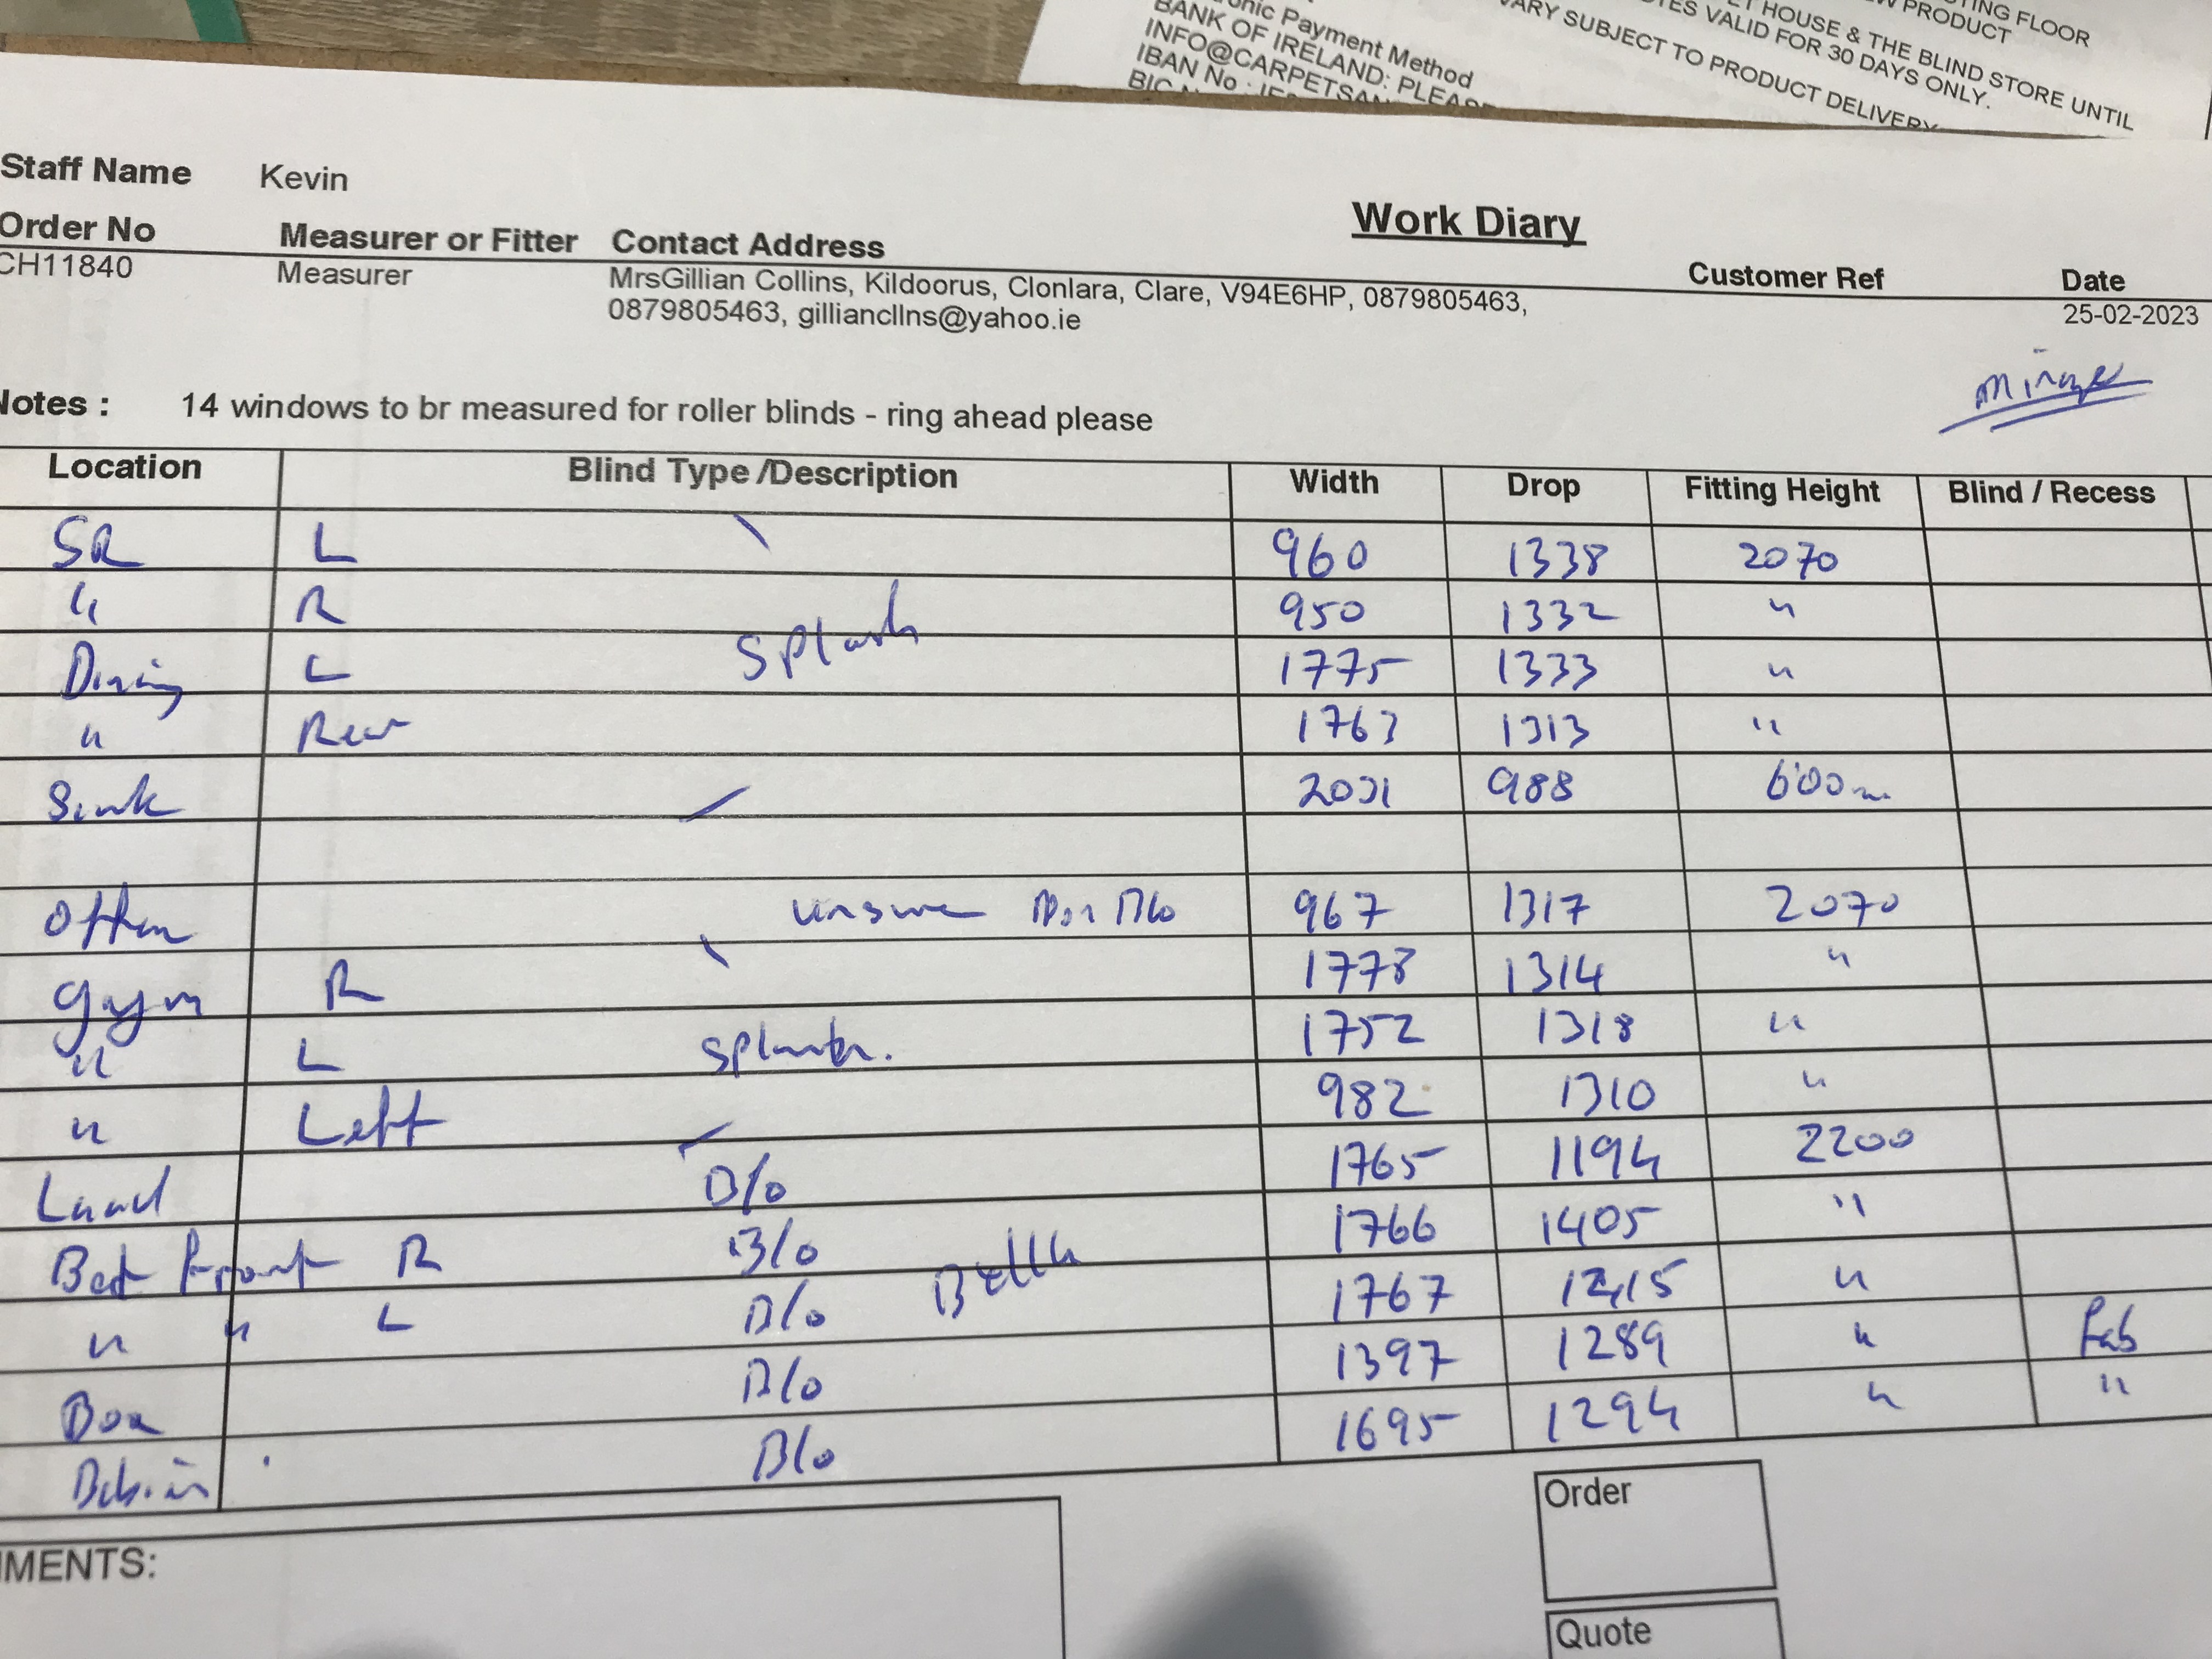 onic Payment Method
BANK OF IRELAND: PLEASE
INFO@CARPETSAN
IBAN No : IE
BIC N
TING FLOOR
W PRODUCT
T HOUSE & THE BLIND STORE UNTIL
TES VALID FOR 30 DAYS ONLY.
VARY SUBJECT TO PRODUCT DELIVERY
Staff Name Kevin
Work Diary
Order No Measurer or Fitter Contact Address Customer Ref Date
CH11840 Measurer MrsGillian Collins, Kildoorus, Clonlara, Clare, V94E6HP, 0879805463, 25-02-2023
0879805463, gilliancllns@yahoo.ie
Mirage
Notes : 14 windows to br measured for roller blinds - ring ahead please
Location Blind Type /Description Width Drop Fitting Height Blind / Recess
SR L 960 1338 2070
" R 950 1332 "
Splash
Dining L 1775 1333 "
" Rear 1763 1313 "
Sink 2001 988 600m
Office unsure Non B/o 967 1317 2070
Gym R 1778 1314 "
" L Splash 1752 1318 "
" Left 982 1310 "
Land B/o 1765 1194 2200
Bed Front R B/o 1766 1405 "
Bella
" " L B/o 1767 1215 "
Box B/o 1397 1289 " Fab
B/o 1695 1294 " "
MMENTS:
Order
Quote